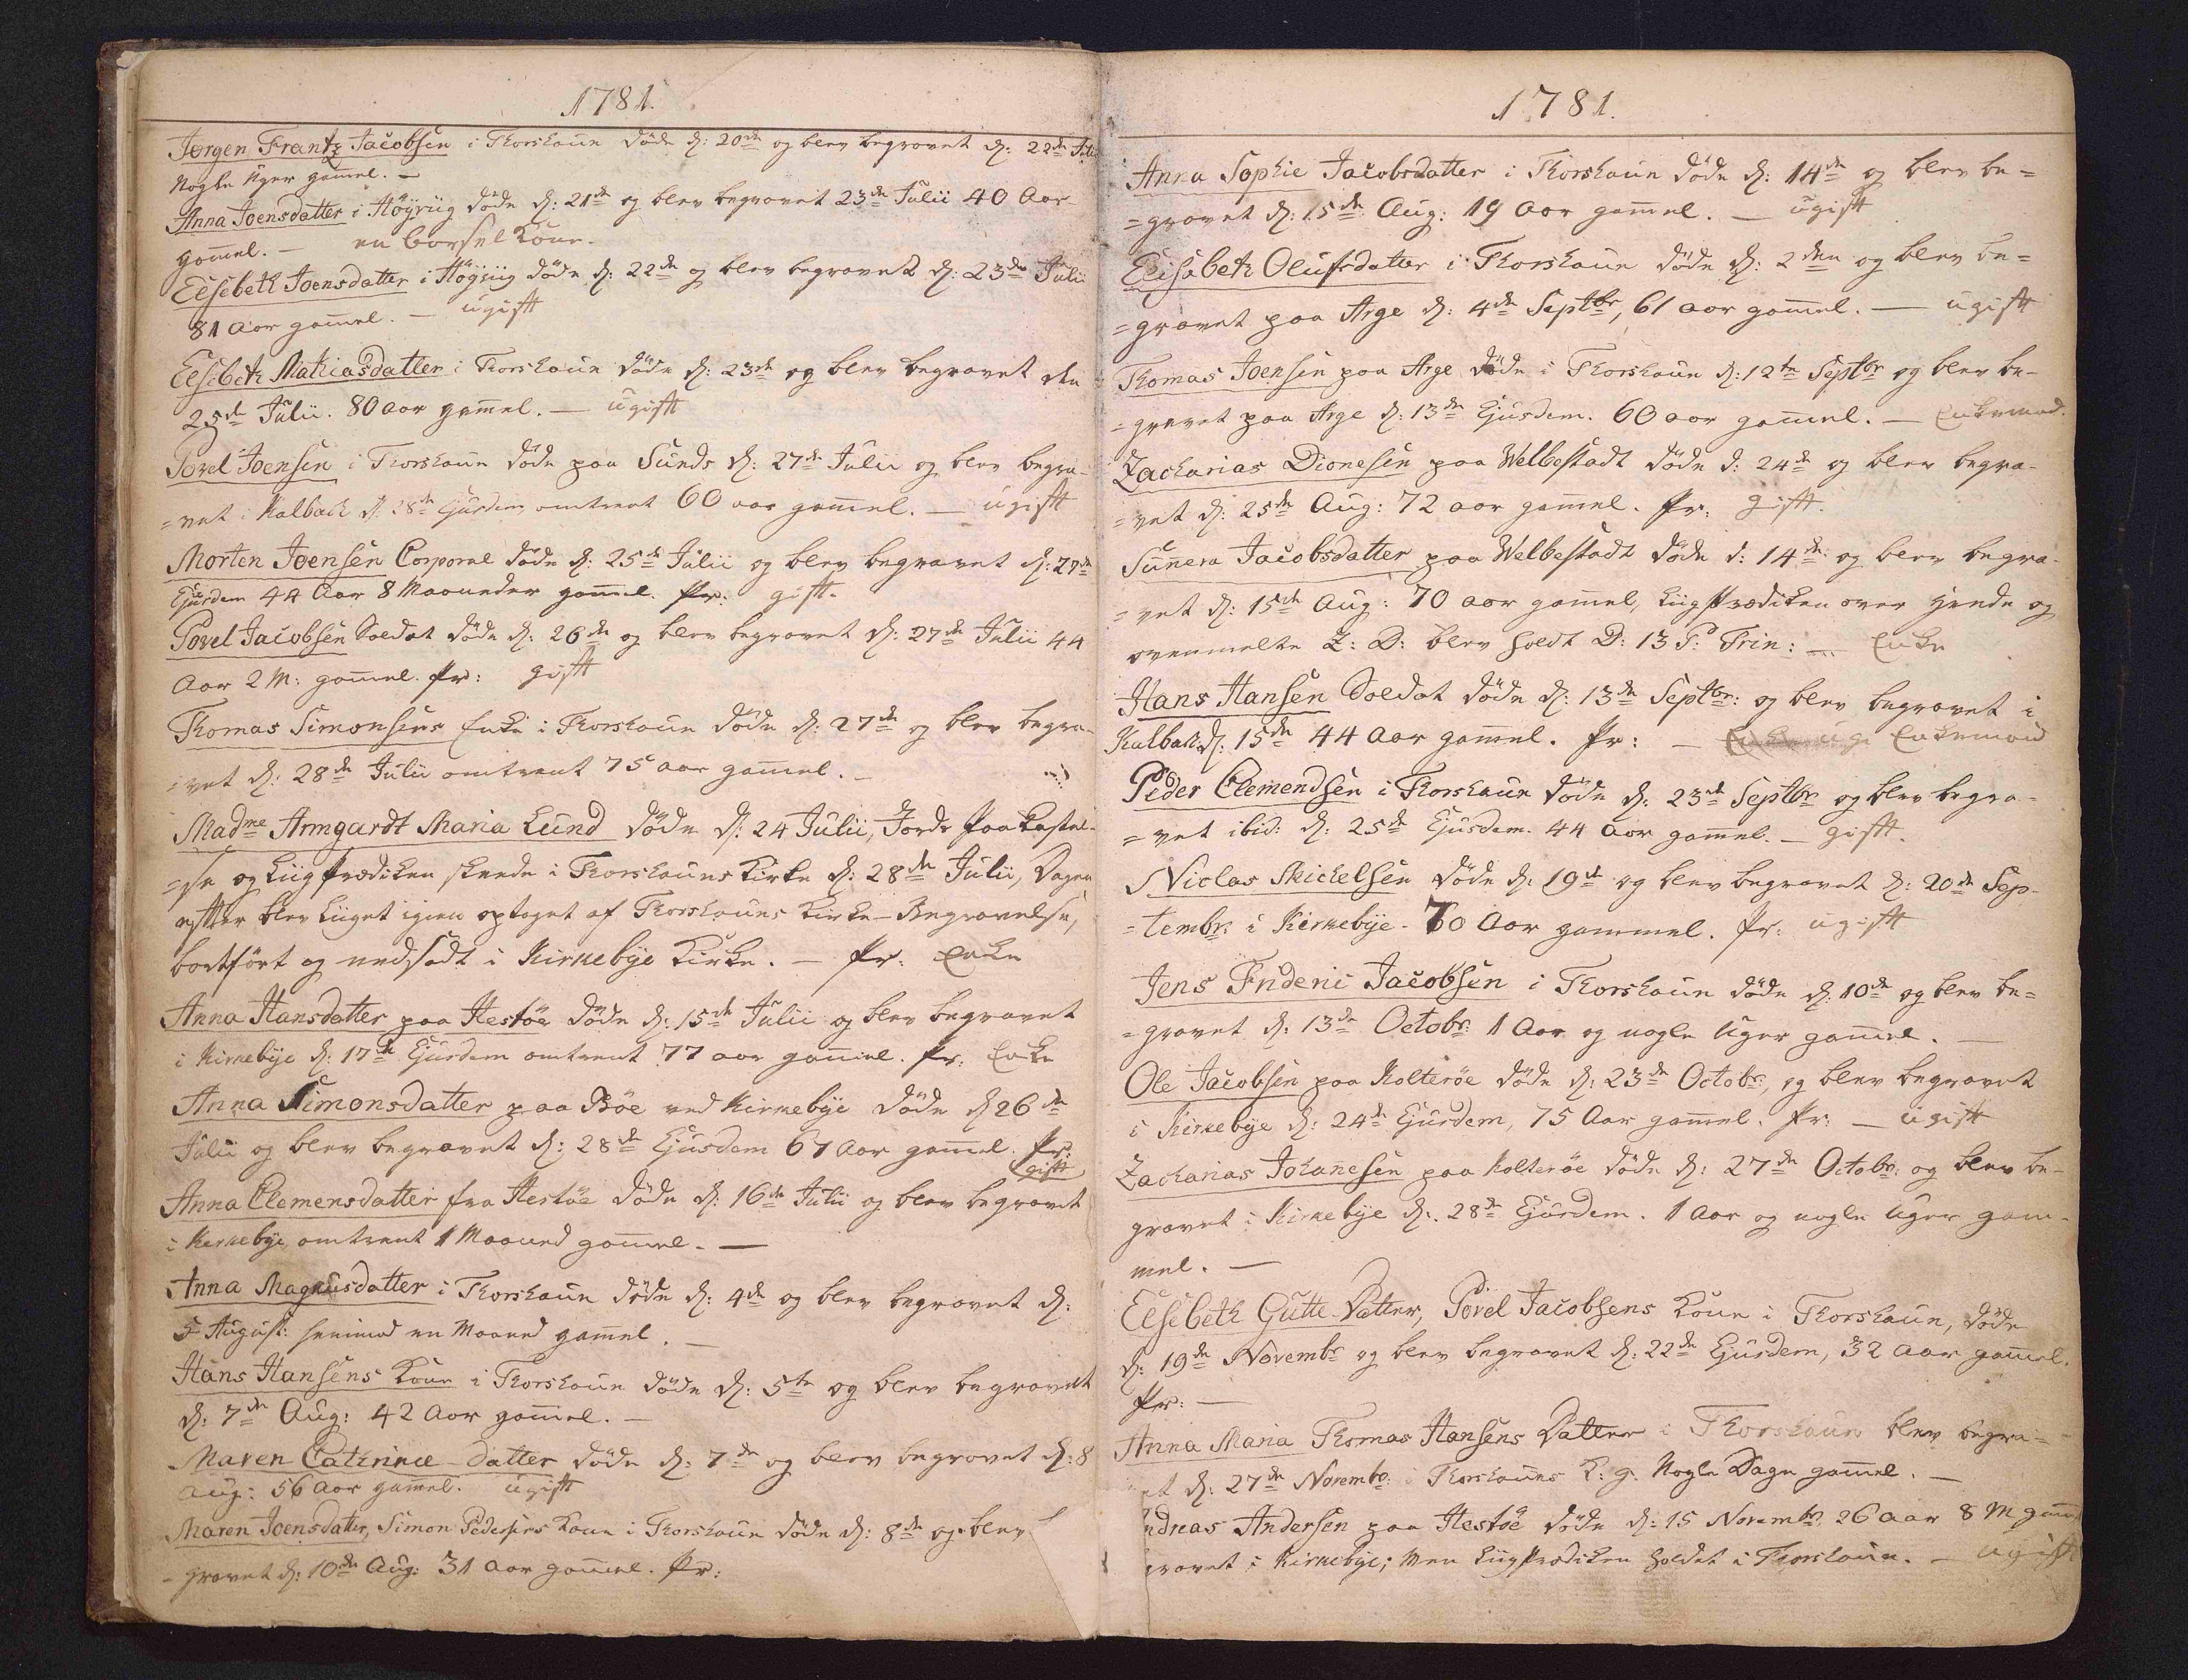 1781.
Jørgen Frantz Jacobsen i Thorshaun døde d: 20de og blev begravet d: 22de Julii
Nogle Uger gam̄el. —
Anna Joensdatter i Höÿviig døde d: 21de og blev begravet 23de Julii 40 Aar
gam̄el. — en Barsel Kone.
Elsebeth Joensdatter i Höÿviig døde d: 22de og blev begravet d: 23de Julii
81 Aar gam̄el. — ugift
Elsebeth Mathiasdatter i Thorshaun døde d: 23de og blev begravet den
25de Julii. 80 aar gam̄el. — ugift
Povel Joensen i Thorshaun døde paa Sunds d: 27de Julii og blev begra-
=vet i Kalbach d: 28de Ejusdem omtrent 60 aar gam̄el. — ugift
Morten Joensen Corporal døde d: 25de Julii og blev begravet d: 27de
Ejusdem 44 Aar 8 Maaneder gam̄el. Pr: gift.
Povel Jacobsen Soldat døde d: 26de og blev begravet d: 27de Julii 44
Aar 2 M: gam̄el. Pr: gift
Thomas Simonsens Enke i Thorshaun døde d: 27de og blev begra-
=vet d: 28de Julii omtrent 75 aar gam̄el. —
Madme Armgardt Maria Lund døde d: 24 Julii, Jords Paakastel-
=se og Liigprædiken skeede i Thorshauns Kirke d: 28de Julii, Dagen
efter blev Liiget igien optaget af Thorshauns Kirke-Begravelse,
bortført og nedsadt i Kirkebÿe Kirke. — Pr: Enke
Anna Hansdatter paa Hestöe døde d: 15de Julii og blev begravet
i Kirkebÿe d: 17de Ejusdem omtrent 77 aar gam̄el. Pr: Enke
Anna Simonsdatter paa Böe ved Kirkebÿe døde d 26de
Julii og blev begravet d: 28de Ejusdem 67 Aar gam̄el. Pr:
gift
Anna Clemensdatter fra Hestöe døde d: 16de Julii og blev begravet
i Kirkebÿe, omtrent 1 Maaned gam̄el. —
Anna Magnusdatter i Thorshaun døde d: 4de og blev begravet d:
5 August: henimod en Maaned gam̄el. —
Hans Hansens Kone i Thorshaun døde d: 5te og blev begravet
d: 7de Aug: 42 Aar gam̄el. —
Maren Cathrinæ-datter døde d: 7de og blev begravet d: 8
Aug: 56 Aar gam̄el. ugift
Maren Joensdatter, Simon Pedersens Kone i Thorshaun døde d: 8de og blev
=gravet d: 10de Aug: 31 Aar gam̄el. Pr:
1781.
Anna Sophie Jacobsdatter i Thorshaun døde d: 14de og blev be=
=gravet d: 15de Aug: 19 Aar gam̄el. — ugift
Elisabeth Olufsdatter i Thorshaun døde d: 2den og blev be=
=gravet paa Arge d: 4de Septbr, 61 aar gam̄el. — ugift
Thomas Joensen paa Arge døde i Thorshaun d: 12te Septbr og blev be-
=gravet paa Arge d: 13de Ejusdem. 60 aar gam̄el. — Enkemand.
Zacharias Dionesen paa Welbestadt døde d: 24de og blev begra-
=vet d: 25de Aug: 72 aar gam̄el. Pr: gift.
Sun̄eva Jacobsdatter paa Welbestadt døde d: 14de og blev begra-
=vet d: 15de Aug: 70 aar gam̄el, Liigprædiken over hende og
ovenmelte Z: D: blev holdt D: 13 P: Trin: — Enke
Hans Hansen Soldat døde d: 13de Septbr: og blev begravet i
Kalbach d: 15de 44 Aar gam̄el. Pr: — Enkemand
Peder Clemendsen i Thorshaun døde d: 23de Septbr og blev begra-
=vet ibid: d: 25de Ejusdem. 44 Aar gam̄el. — gift.
Niclas Michelsen døde d: 19de og blev begravet d: 20de Sep-
=tembr: i Kirkebÿe. 70 Aar gammel. Pr: ugift
Jens Frideric Jacobsen i Thorshaun døde d: 10de og blev be=
=gravet d: 13de Octobr: 1 Aar og nogle Uger gam̄el. —
Ole Jacobsen paa Kolteröe døde d: 23de Octobr, og blev begravet
i Kirkebÿe d: 24de Ejusdem, 75 Aar gam̄el. Pr: — ugift
Zacharias Johan̄esen paa Kolteröe døde d: 27de Octobr: og blev be-
gravet i Kirkebÿe d: 28de Ejusdem. 1 Aar og nogle Uger gam-
mel. —
Elsebeth Gutte-Datter, Povel Jacobsens Kone i Thorshaun, døde
d: 19de Novembr og blev begravet d: 22de Ejusdem, 32 Aar gam̄el.
Pr: —
Anna Maria Thomas Hansens Datter i Thorshaun blev begra=
et d: 27de Novembr: i Thorshauns K: g. Nogle Dage gam̄el. —
ndreas Andersen paa Hestöe døde d: 15 Novembr: 26 aar 8 M gam̄
gravet i Kirkebÿe; men Liigprædiken holdet i Thorshaun. — ugift